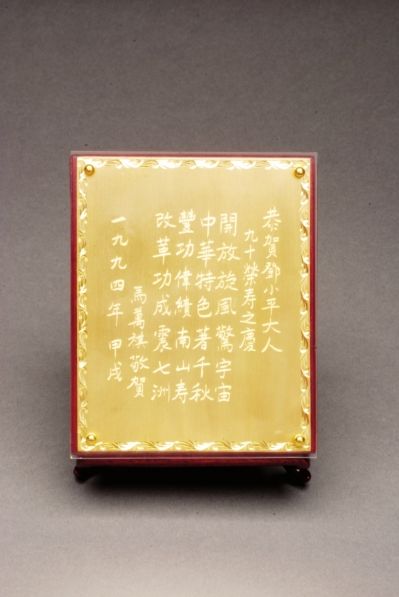 恭賀鄧小平大人
九十榮寿之慶
開放旋風驚宇宙
中華特色著千秋
豐功偉績南山寿
改革功成震七洲
馬萬祺敬賀
一九九四年甲戌